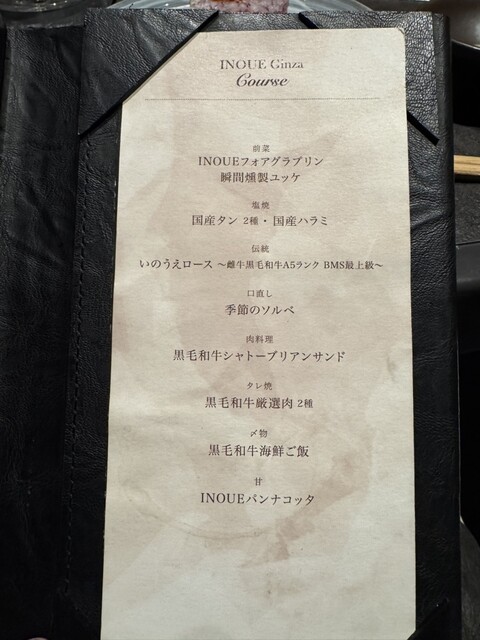 INOUE Ginza
Course
前菜
INOUEフォアグラプリン
瞬間燻製ユッケ
塩焼
国産タン 2種・国産ハラミ
伝統
いのうえロース 〜雌牛黒毛和牛A5ランク BMS最上級〜
口直し
季節のソルベ
肉料理
黒毛和牛シャトーブリアンサンド
タレ焼
黒毛和牛厳選肉 2種
〆物
黒毛和牛海鮮ご飯
甘
INOUEパンナコッタ